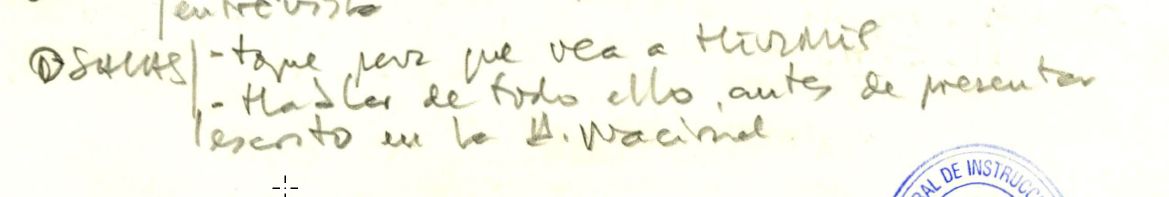 entrevista
① SALAS - toque para que vea a
- Hablar de todo ello, antes de presentar
escrito en la A. Nacional.
RAL DE INSTRUCC